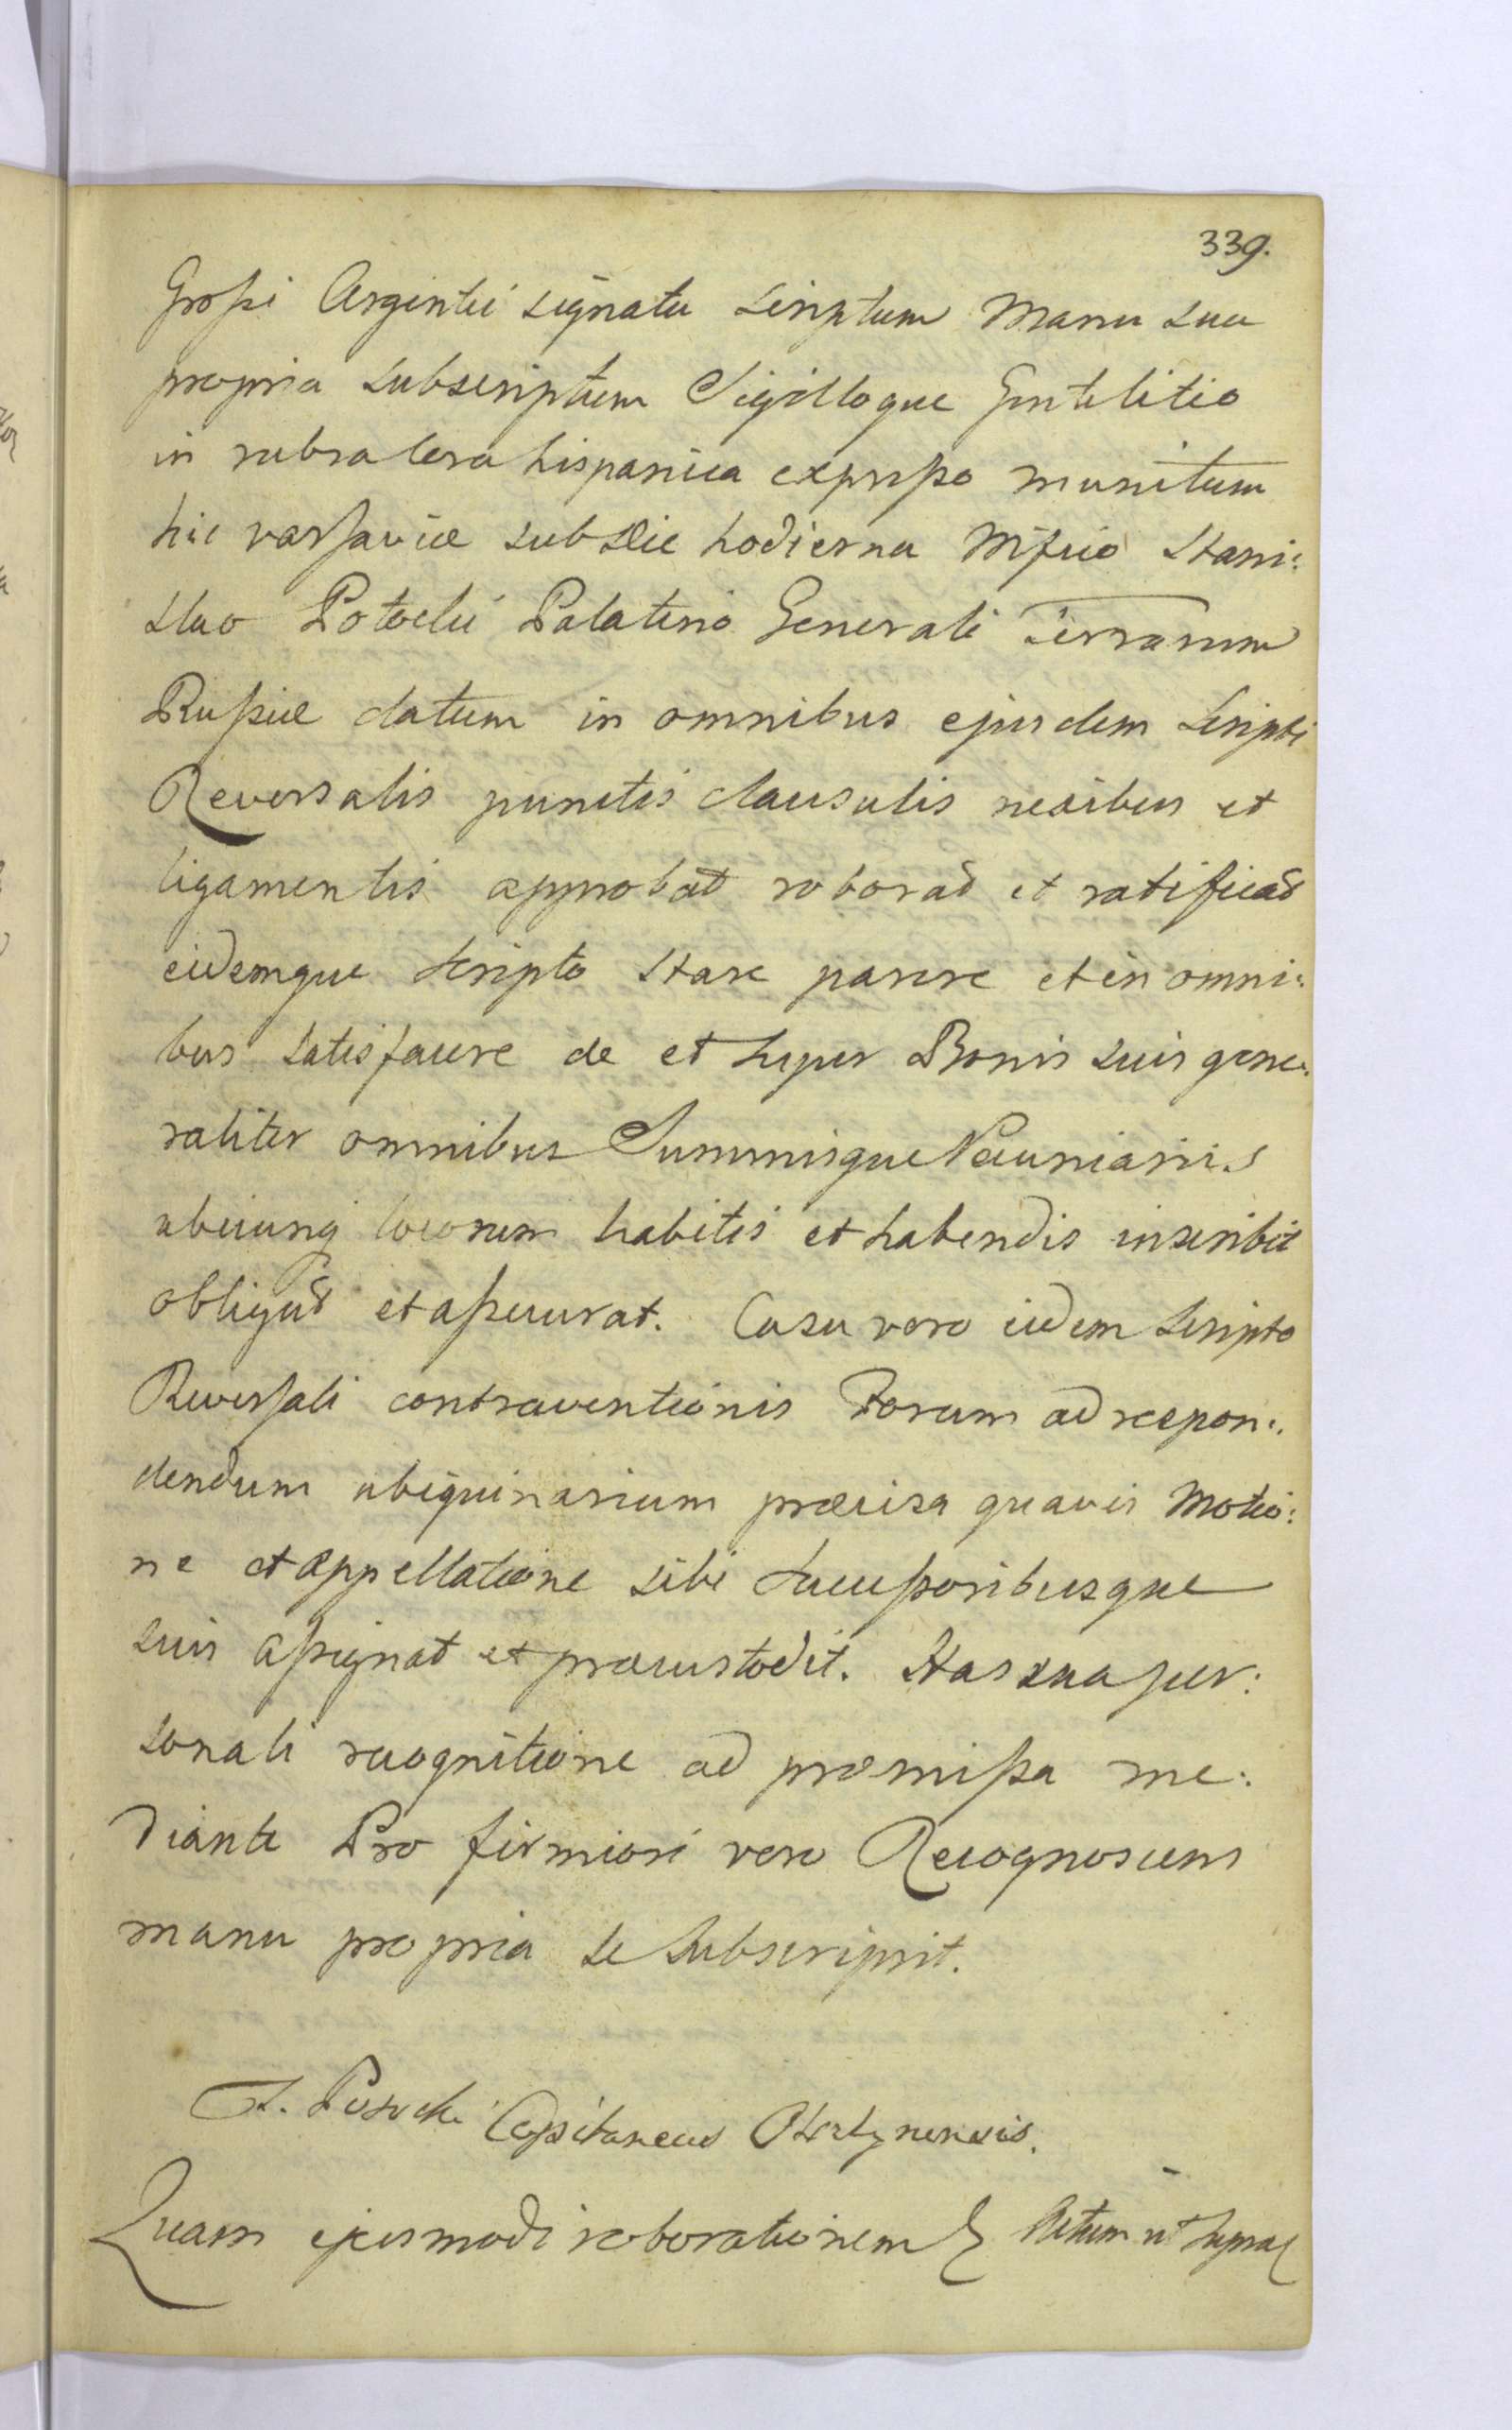 339.
Grossi Argentei signata scriptum Manu sua
propria subscriptum Sigilloque Gentilitio
in rubra cera hispanica expresso munitum
hic varsaviæ sub die hodierna Mfico Stani:
slao Potocki Palatino Generali Terrarum
Russiæ datum in omnibus ejusdem Scripti
Reversalis punctis clausulis nexibus et
ligamentis approbat roborat et ratificat
eidemque scripto stare parere et in omni:
bus satisfacere de et super Bonis suis gene:
raliter omnibus Summisque Pecuniariis
ubicunq locorum habitis et habendis inscribit
obligat et assecurat. Casu vero eidem Scripto
Reversali contraventionis Forum ad respon:
dendum ubiquinarium præcisa quavis Motio:
ne et appellatione sibi Successoribusque
suis assignat et præcustodit. Hac sua per:
sonali recognitione ad præmissa me:
diante Pro firmiori vero Recognoscens
manu propria se subscripsit.
Capitaneus
Quam ejusmodi roborationem Actum ut supra